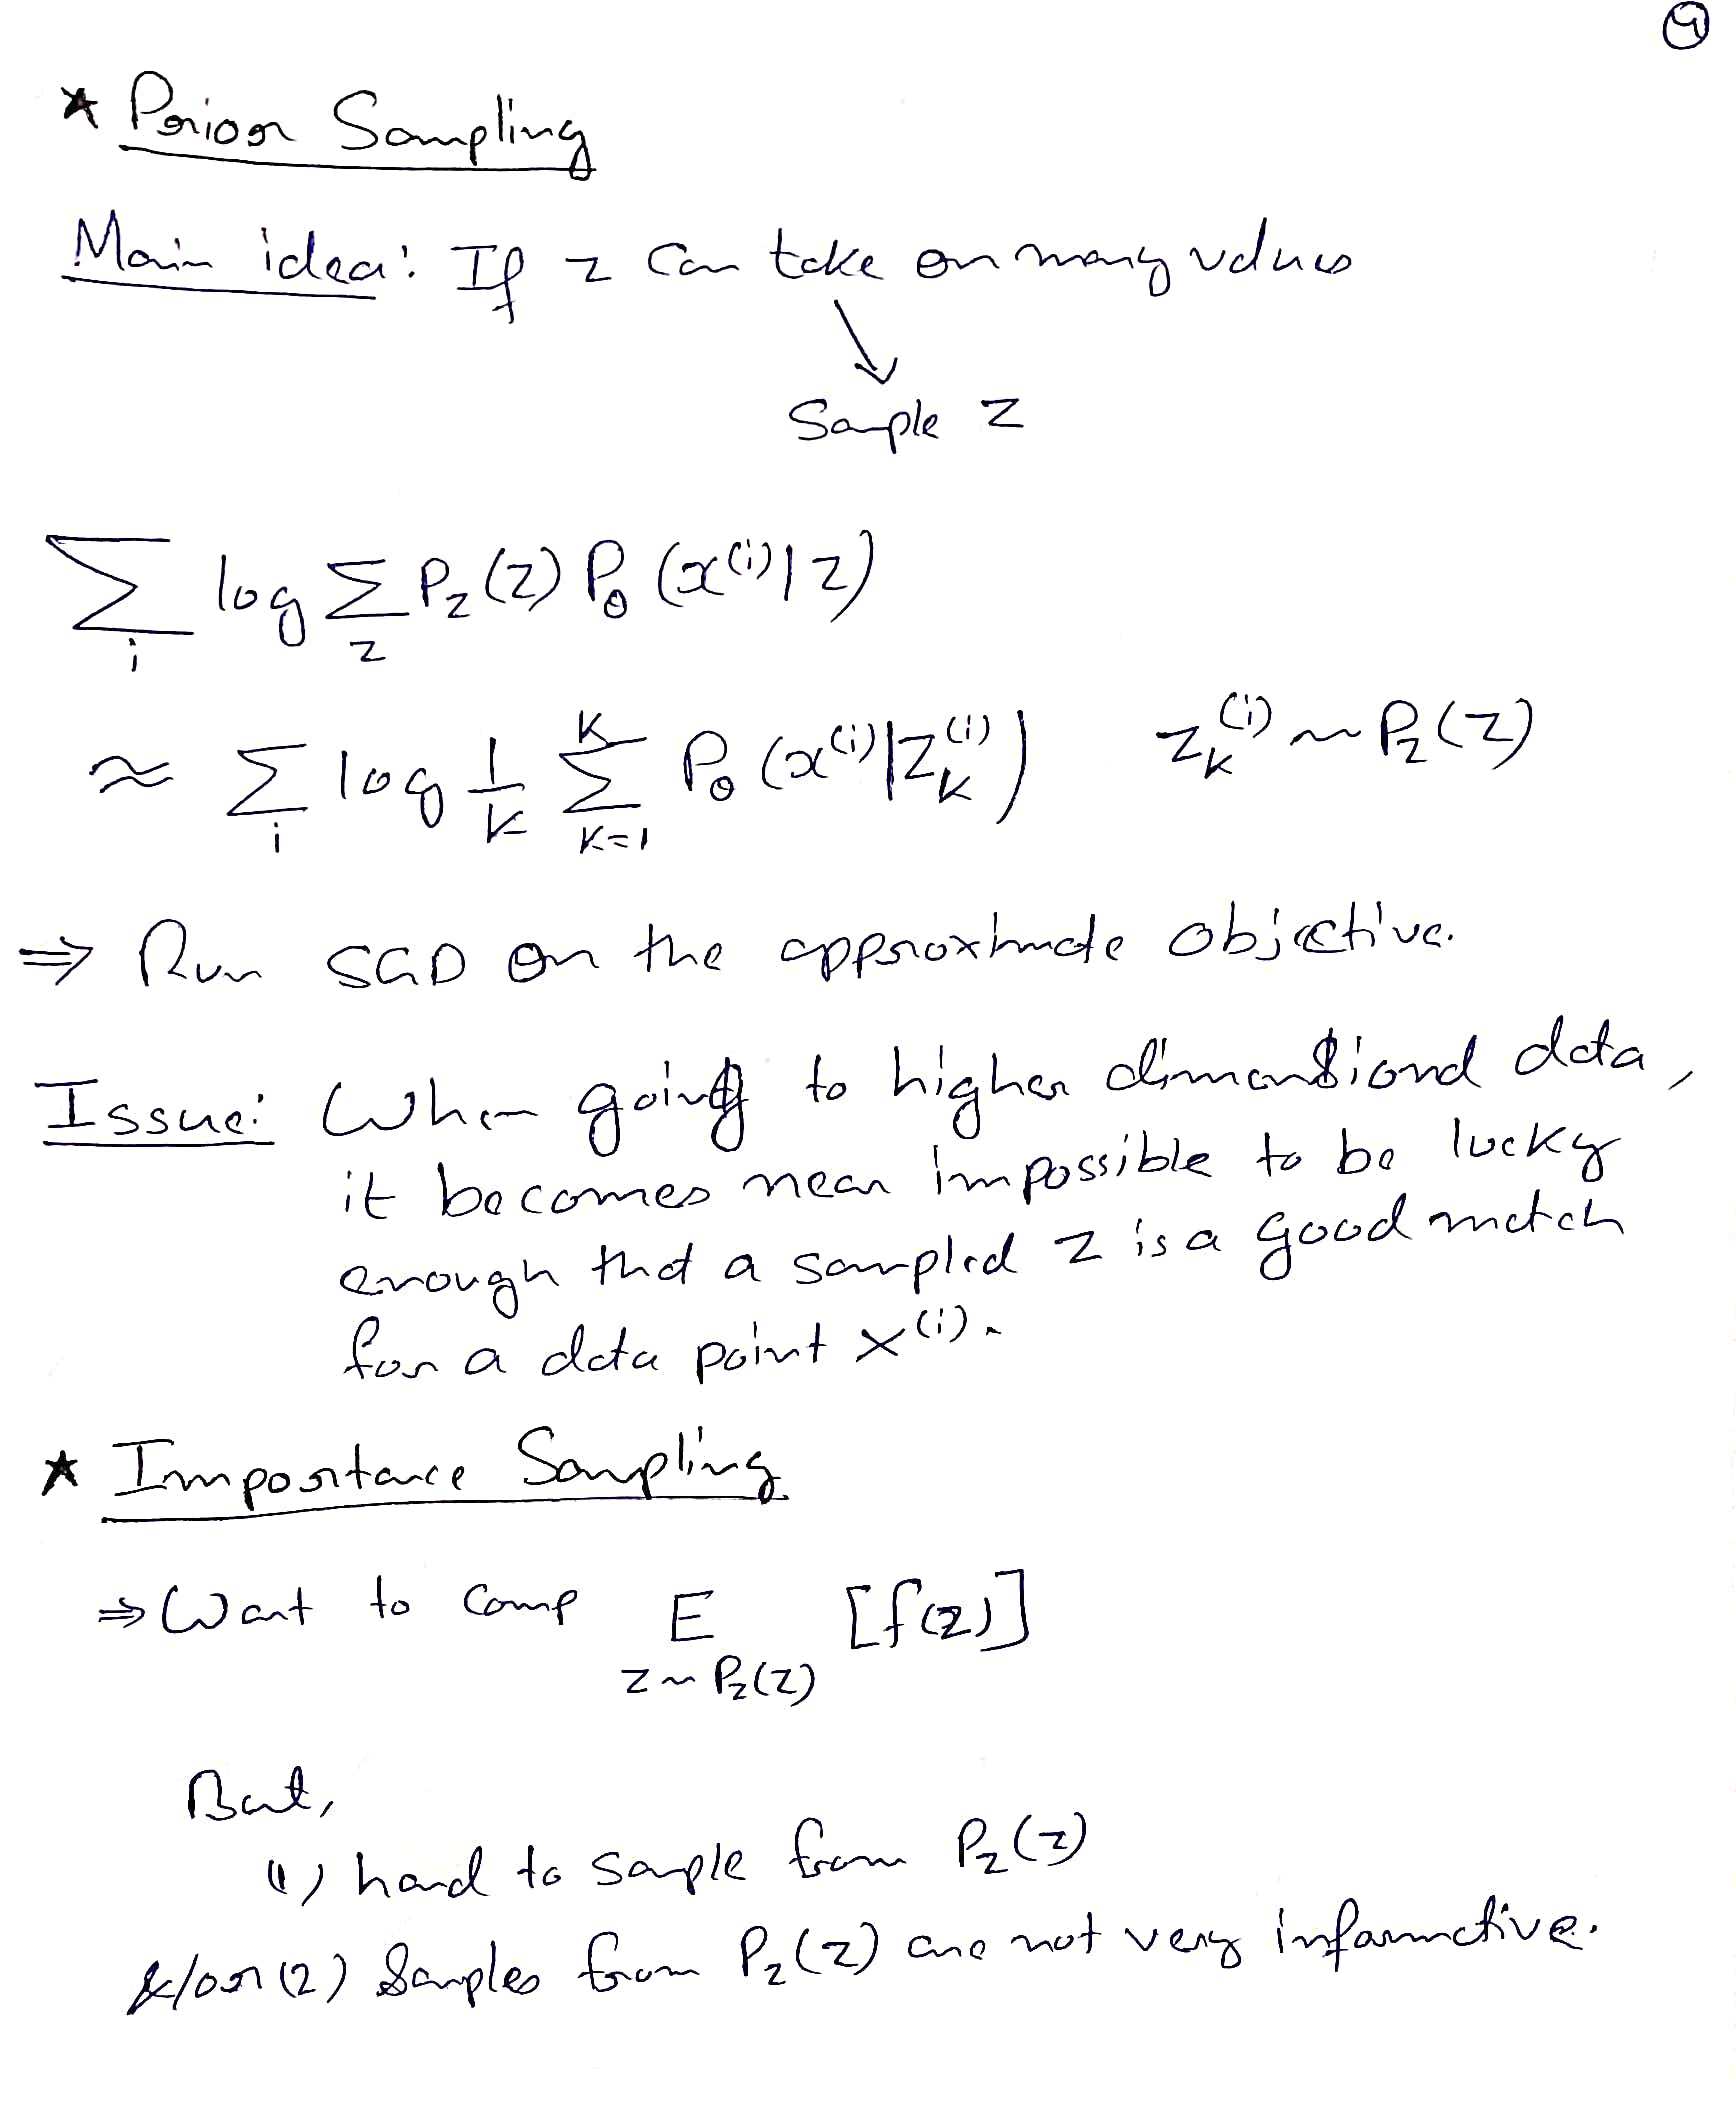 9
* Prior Sampling
Main idea: If z can take on many values
↓
Sample z
∑_i log ∑_z P_z(z) P_θ(x^(i)|z)
≈ ∑_i log 1/K ∑_{k=1}^K P_θ(x^(i)|z_k^(i))    z_k^(i) ~ P_z(z)
⇒ Run SGD on the approximate objective.
Issue: When going to higher dimensional data,
it becomes near impossible to be lucky
enough that a sampled z is a good match
for a data point x^(i).
* Importance Sampling
⇒ Want to comp E_{z~P_z(z)} [f(z)]
But,
(1) hard to sample from P_z(z)
&/or (2) Samples from P_z(z) are not very informative.